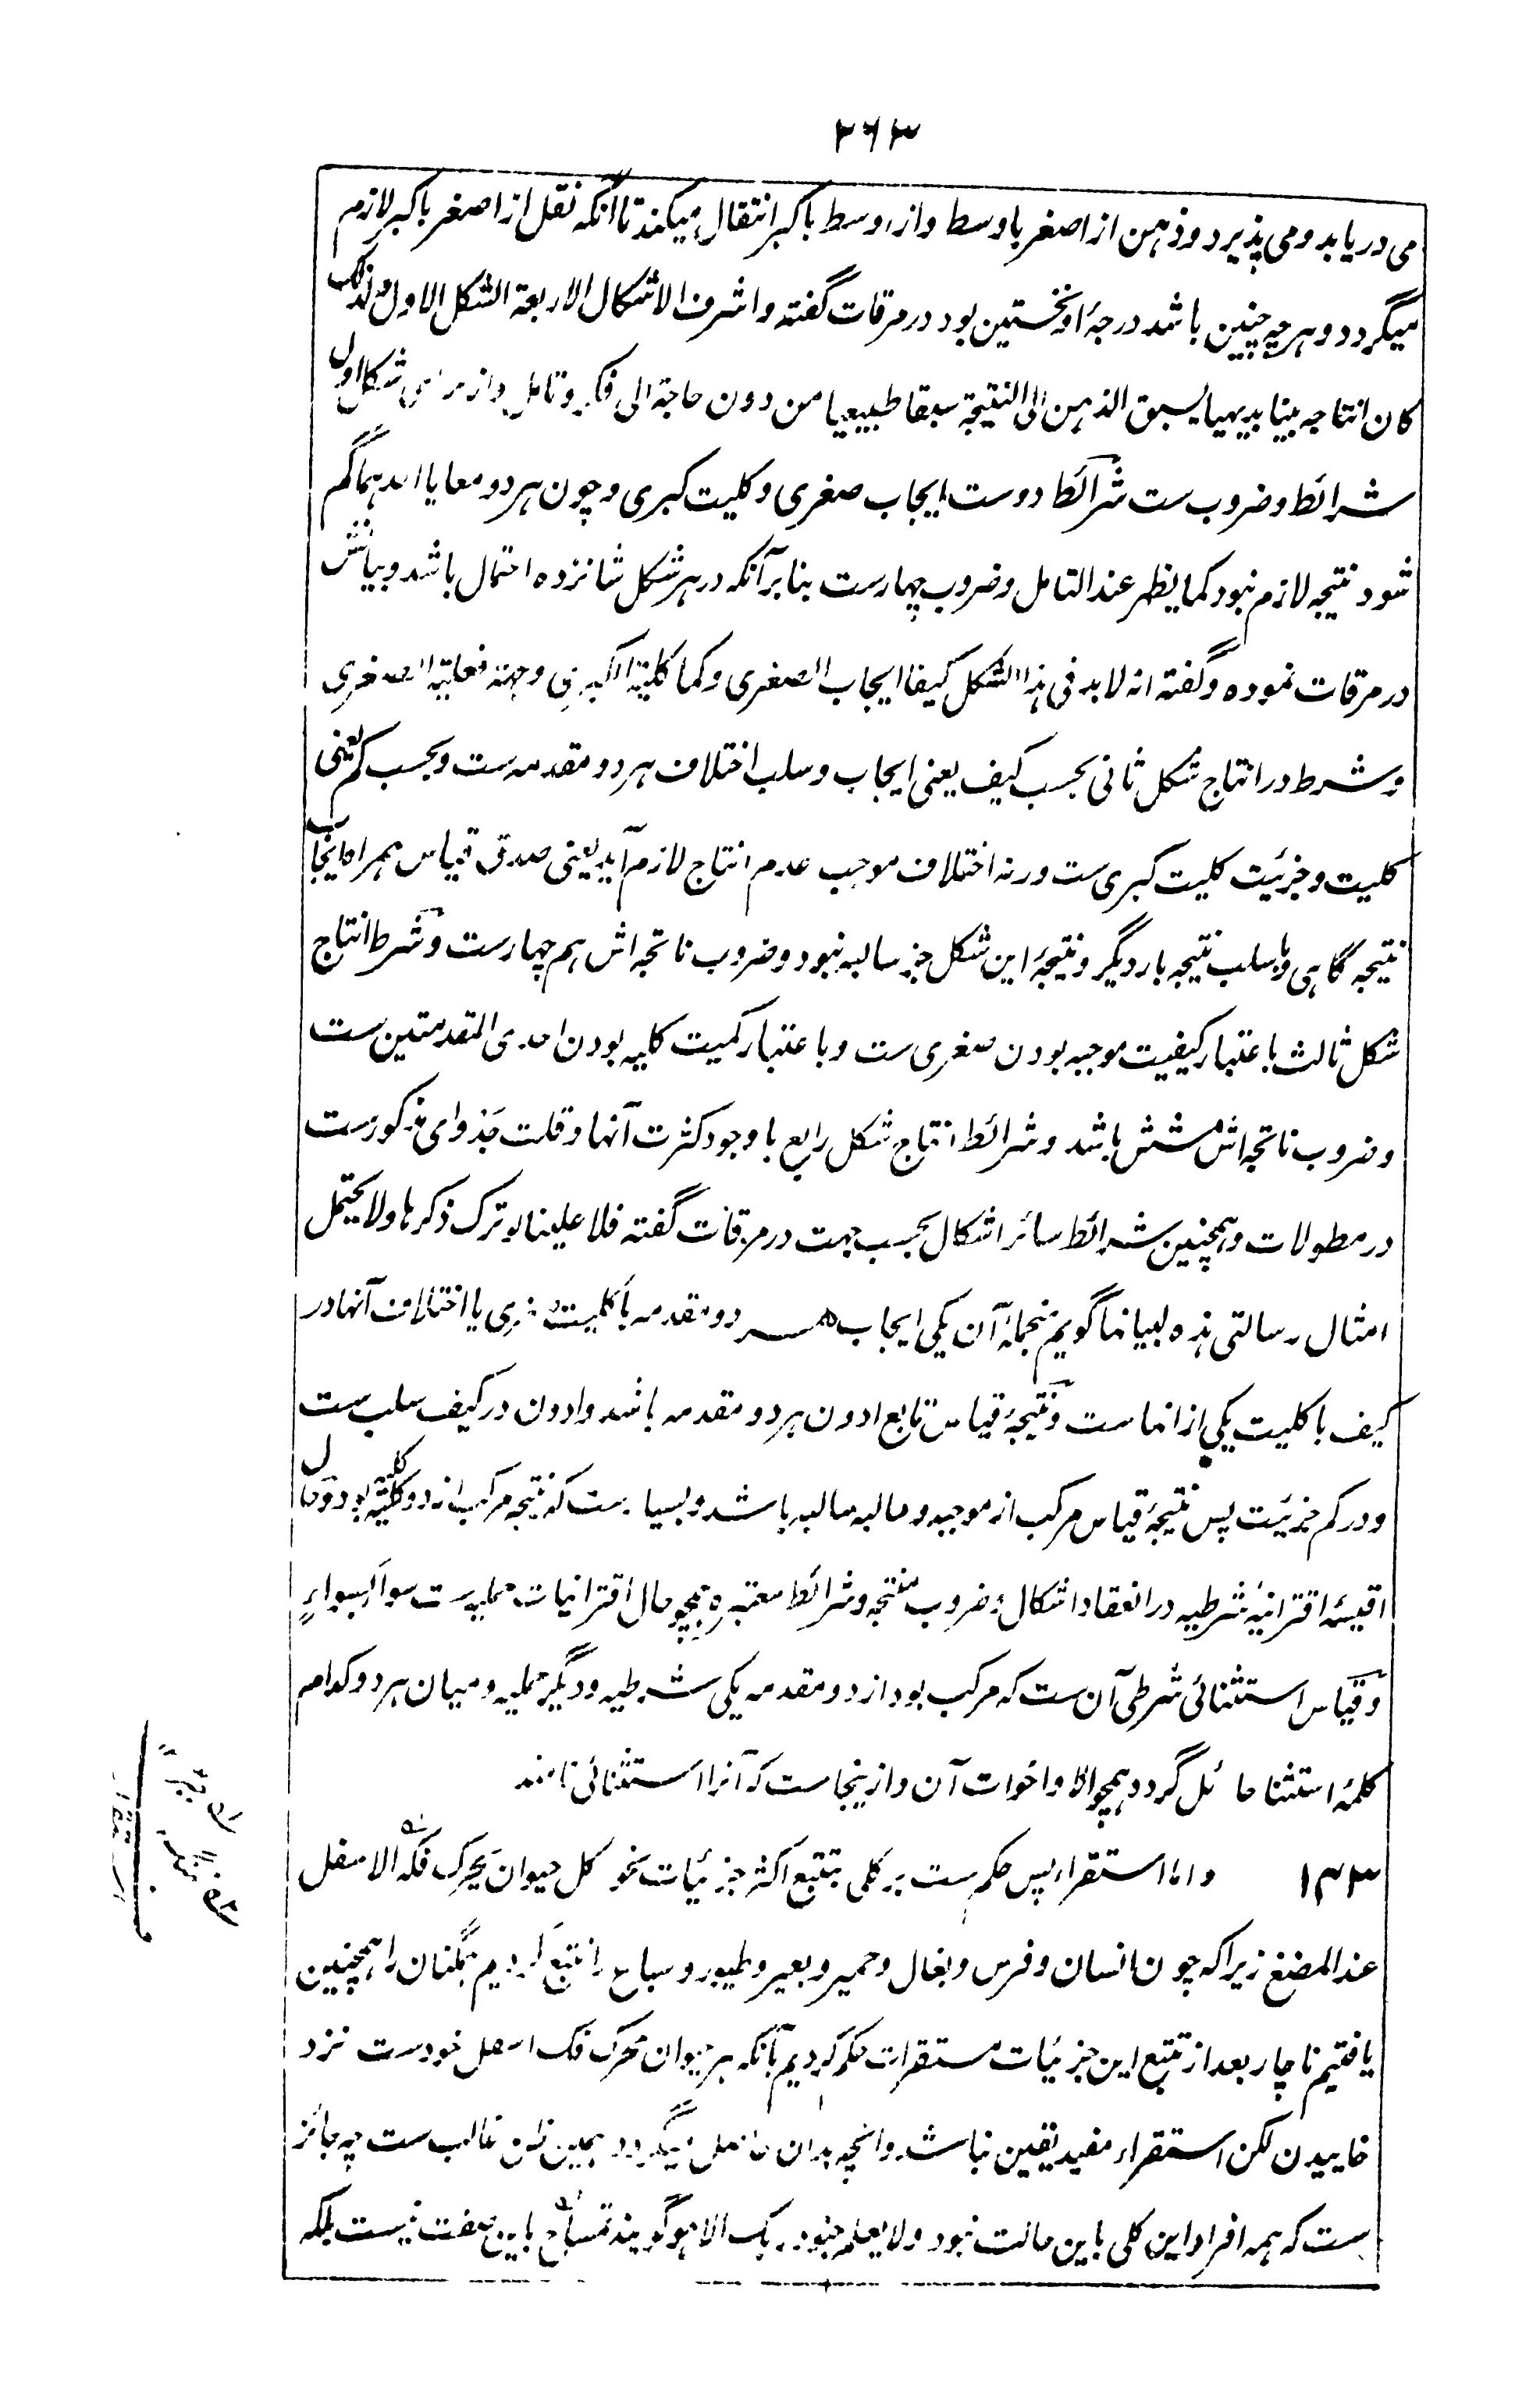 ۲۶۳
می دریابد و می پذیرد و ذهن از اصغر باوسط و از اوسط باکبر انتقال میکند تا آنکه نقل از اصغر باکبر لازم
میگردد و هرچه چنین باشد درجهٔ او نخستین بود در مرقات گفته واشرف الاشکال الاربعة الشکل الاول ولذلک
کان انتاجه بینا بدیهیا یسبق الذهن الی النتیجة سبقا طبیعیا من دون حاجة الی فکر و تامل و از برای شکل اول
شرائط و ضروب ست شرائط دوست ایجاب صغری و کلیت کبری و چون هردو معا یا احدهما گم
شود نتیجه لازم نبود کما یظهر عند التامل و ضروب چهارست بنابر آنکه در هر شکل شانزده احتمال باشد و بیانش
در مرقات نموده و گفته انه لابد فی هذا الشکل کیفا ایجاب الصغری و کما کلیة الکبری و جهة فعلیة الصغری
و شرط در انتاج شکل ثانی بحسب کیف یعنی ایجاب و سلب اختلاف هردو مقدمه ست و بحسب کم یعنی
کلیت و جزئیت کلیت کبری ست ورنه اختلاف موجب عدم انتاج لازم آید یعنی صدق قیاس همراه ایجاب
نتیجه گاهی و با سلب نتیجه بار دیگر و نتیجهٔ این شکل جز سالبه نبود و ضروب ناتجه اش هم چهارست و شرط انتاج
شکل ثالث باعتبار کیفیت موجبه بودن صغری ست و باعتبار کمیت کلیه بودن احدی المقدمتین ست
و ضروب ناتجه اش شش باشد و شرائط انتاج شکل رابع با وجود کثرت آنها و قلت جدوای مذکورست
در مطولات و همچنین شرائط سائر اشکال بحسب جهت در مرقات گفته فلا علینا لو ترک ذکرها ولا یحتمل
امثال رسالتی هذه لبیانها گویم منجملهٔ آن یکی ایجاب هر دو مقدمه با کلیت صغری یا اختلاف آنها در
کیف با کلیت یکی از انها ست و نتیجهٔ قیاس تابع ادون هردو مقدمه باشد و ادون در کیف سلب ست
و در کم جزئیت پس نتیجهٔ قیاس مرکب از موجبه و سالبه سالبه باشد و بسیارست که نتیجه مرکب از دو کلیه کلیه بود و حال
اقیسهٔ اقترانیهٔ شرطیه در انعقاد اشکال و ضروب منتجه و شرائط معتبره همچو حال اقترانیات حملیه ست سواء بسواء
و قیاس استثنائی شرطی آن ست که مرکب بود از دو مقدمه یکی شرطیه و دیگر حملیه و میان هردو کدام
کلمهٔ استثنا حائل گردد همچو الا و اخوات آن و ازینجاست که آنرا استثنائی نامند
۱۳۳ و اما استقراء پس حکم ست بر کلی بتتبع اکثر جزئیات نحو کل حیوان یحرک فکه الاسفل
عند المضغ زیرا که چون انسان و فرس و بغال و حمیر و بعیر و طیور و سباع را تتبع کردیم همگنان را همچنین
یافتیم ناچار بعد از تتبع این جزئیات مستقرات حکم کردیم بآنکه هر حیوان محرک فک اسفل خودست نزد
خاییدن لکن استقراء مفید یقین نباشد و انچه بدان حاصل میگردد همین ظن غالب ست چه جائز
ست که همه افراد این کلی باین حالت نبود ولا یعلم جنود ربک الا هو گویند تمساح باین صفت نیست بلکه